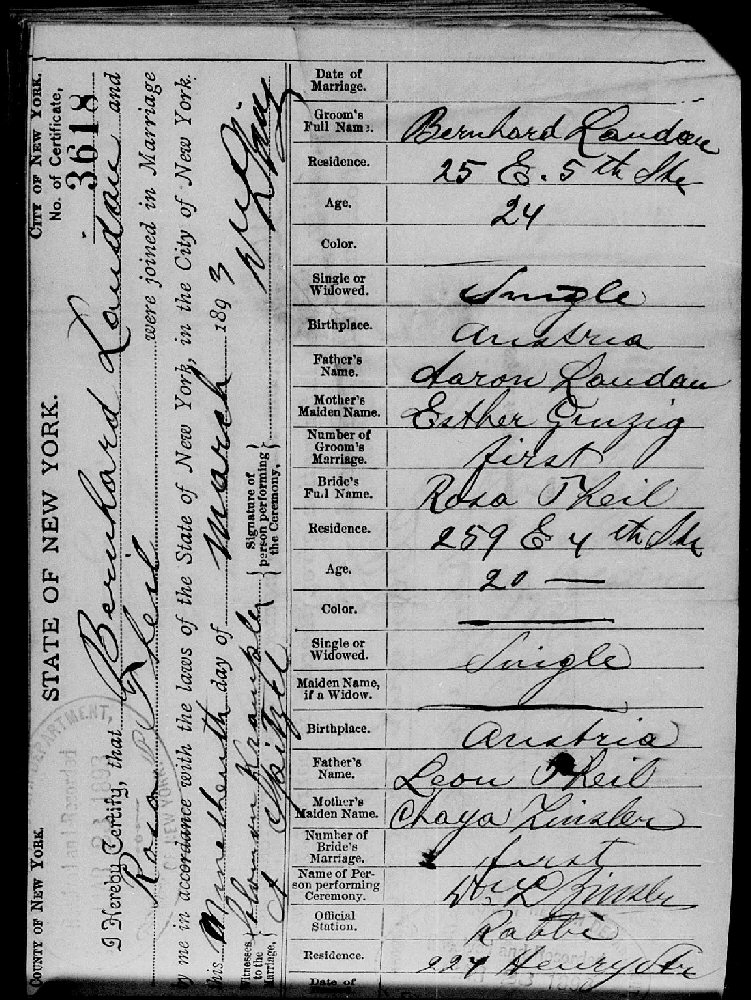 CITY OF NEW YORK.
No. of Certificate,
3618
COUNTY OF NEW YORK.
STATE OF NEW YORK.
I Hereby Certify, that Bernhard Landau and
Rosa Theil were joined in Marriage
by me in accordance with the laws of the State of New York, in the City of New York.
this Ninetheenth day of March 1893
Witnesses
to the
Marriage,
Signature of
person performing
the Ceremony,
Date of
Marriage.
Groom's
Full Name. Bernhard Landau
Residence. 25 E. 5th Str
Age. 24
Color.
Single or
Widowed. Single
Birthplace. Austria
Father's
Name. Aaron Landau
Mother's
Maiden Name. Esther Grüzig
Number of
Groom's
Marriage. first
Bride's
Full Name. Rosa Theil
Residence. 259 E 4th Str
Age. 20 —
Color.
Single or
Widowed. Single
Maiden Name,
if a Widow.
Birthplace. Austria
Father's
Name. Leon Theil
Mother's
Maiden Name. Chaya Zinsler
Number of
Bride's
Marriage. first
Name of Per-
son performing
Ceremony.
Official
Station. Rabbi
Residence. 227 Henry Str
Date of